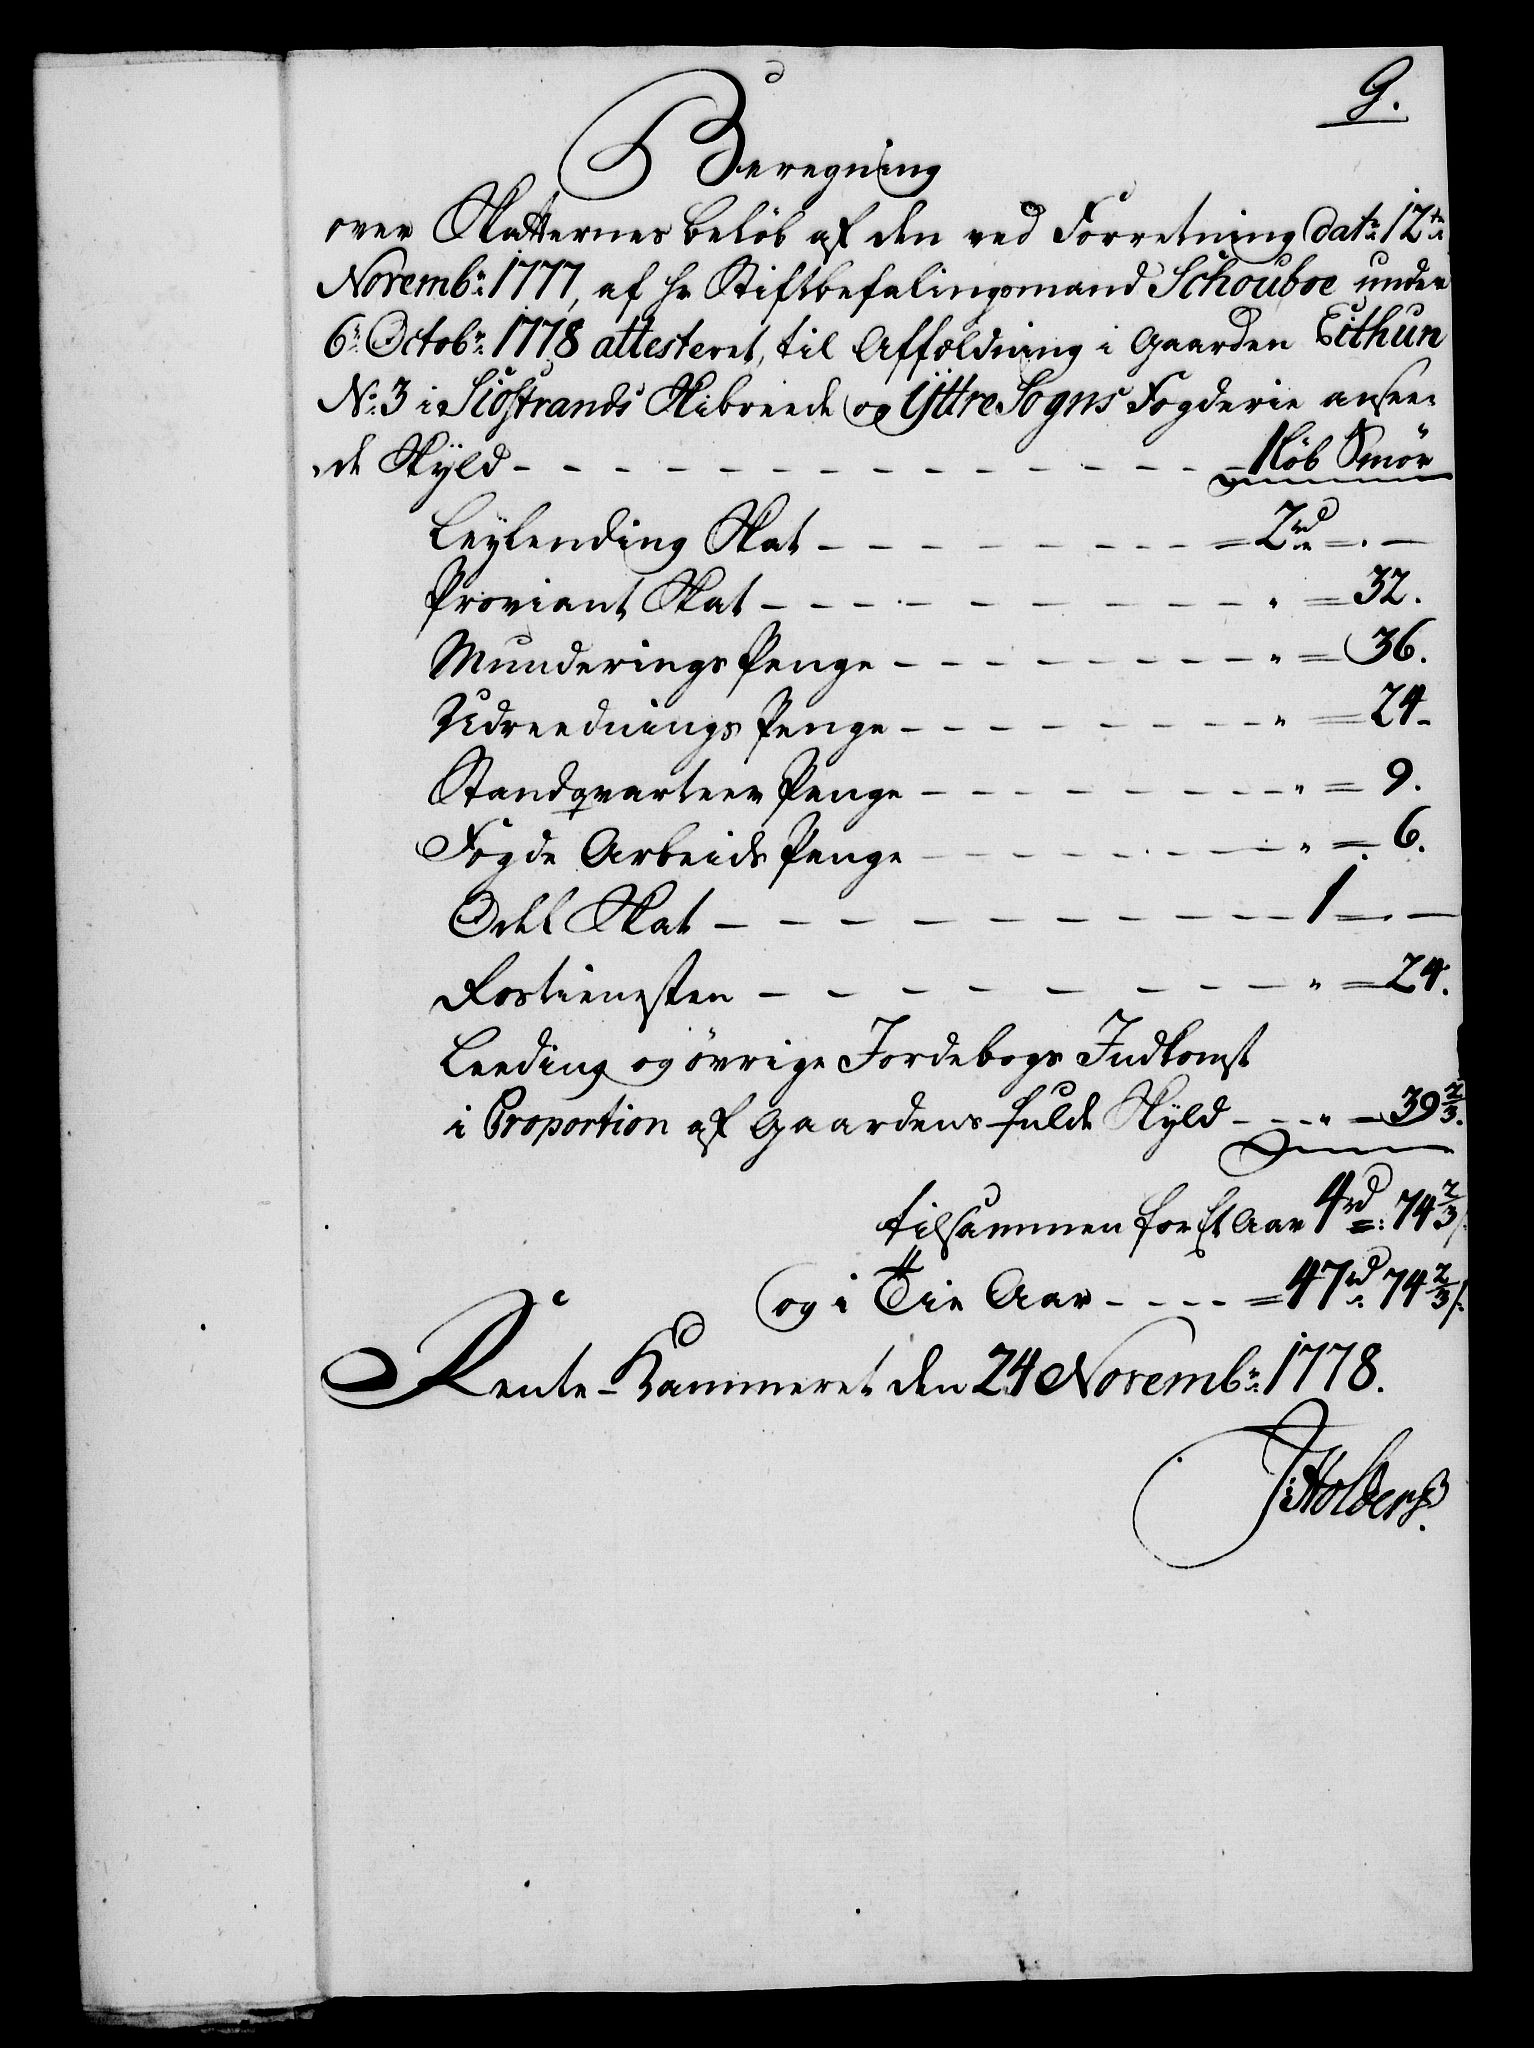 G.
Beregning
over Skatternes beløb af den ved Forretning dat: 12te
Novembr: 1777, af Hr Stiftbefalingsmand Schouboe under
6te Octobr: 1778 attesteret, til Affældning i Gaarden Eithun
No: 3 i Siøstrands Skibreede og Ÿttre Sogns Fogderie ansee-
-de Skÿld - - - - - - 1 Løb Smør
Leÿlending Skat - - - - - = 2rd = . —
Proviant Skat - - - - - " = 32.
Munderings Penge - - - - - " = 36.
Udreednings Penge - - - - - " = 24 -
Standqvarteer Penge - - - - - " = 9.
Fogde Arbeids Penge - - - - - " = 6.
Odel Skat - - - - - 1 = . —
Rostienesten - - - - - " = 24.
Leeding og øvrige Jordebogs Indkomst
i Proportion af Gaardens fulde Skÿld - - - " = 39 2/3.
tilsammen for Et Aar 4rd: 74 2/3 s.
og i Tie Aar - - - - = 47rd: 74 2/3 s.
Rente-Kammeret den 24 Novembr: 1778.
J: Holbers.